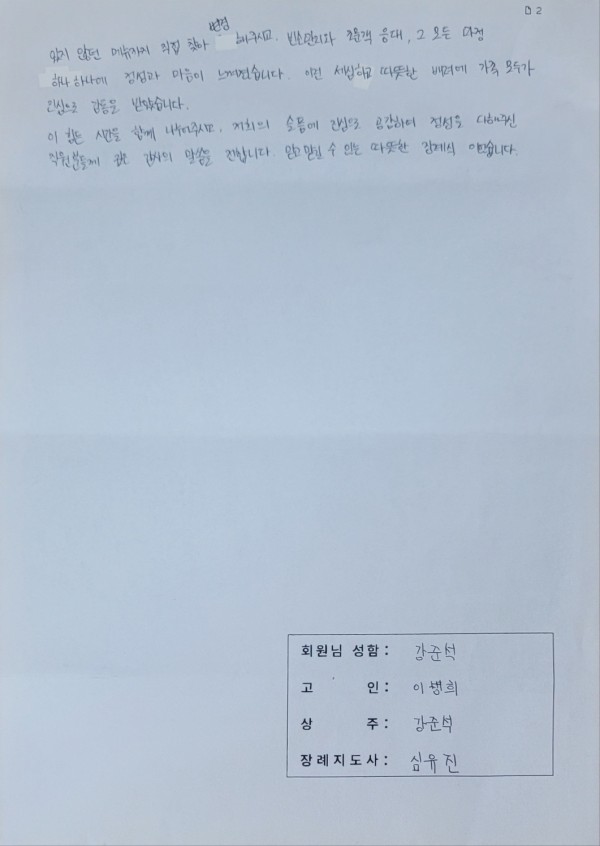 2
변경
있지 않던 메뉴까지 직접 찾아 해주시고, 빈소관리와 조문객 응대, 그 모든 과정
하나하나에 정성과 마음이 느껴졌습니다. 이런 세심하고 따뜻한 배려에 가족 모두가
진심으로 감동을 받았습니다.
이 힘든 시간을 함께 나눠주시고, 저희의 슬픔에 진심으로 공감하여 정성을 다해주신
직원분들께 깊은 감사의 말씀을 전합니다. 믿고 맡길 수 있는 따뜻한 장례식 이었습니다.
회원님 성함 : 강준석
고 인 : 이병희
상 주 : 강준석
장례지도사 : 심유진